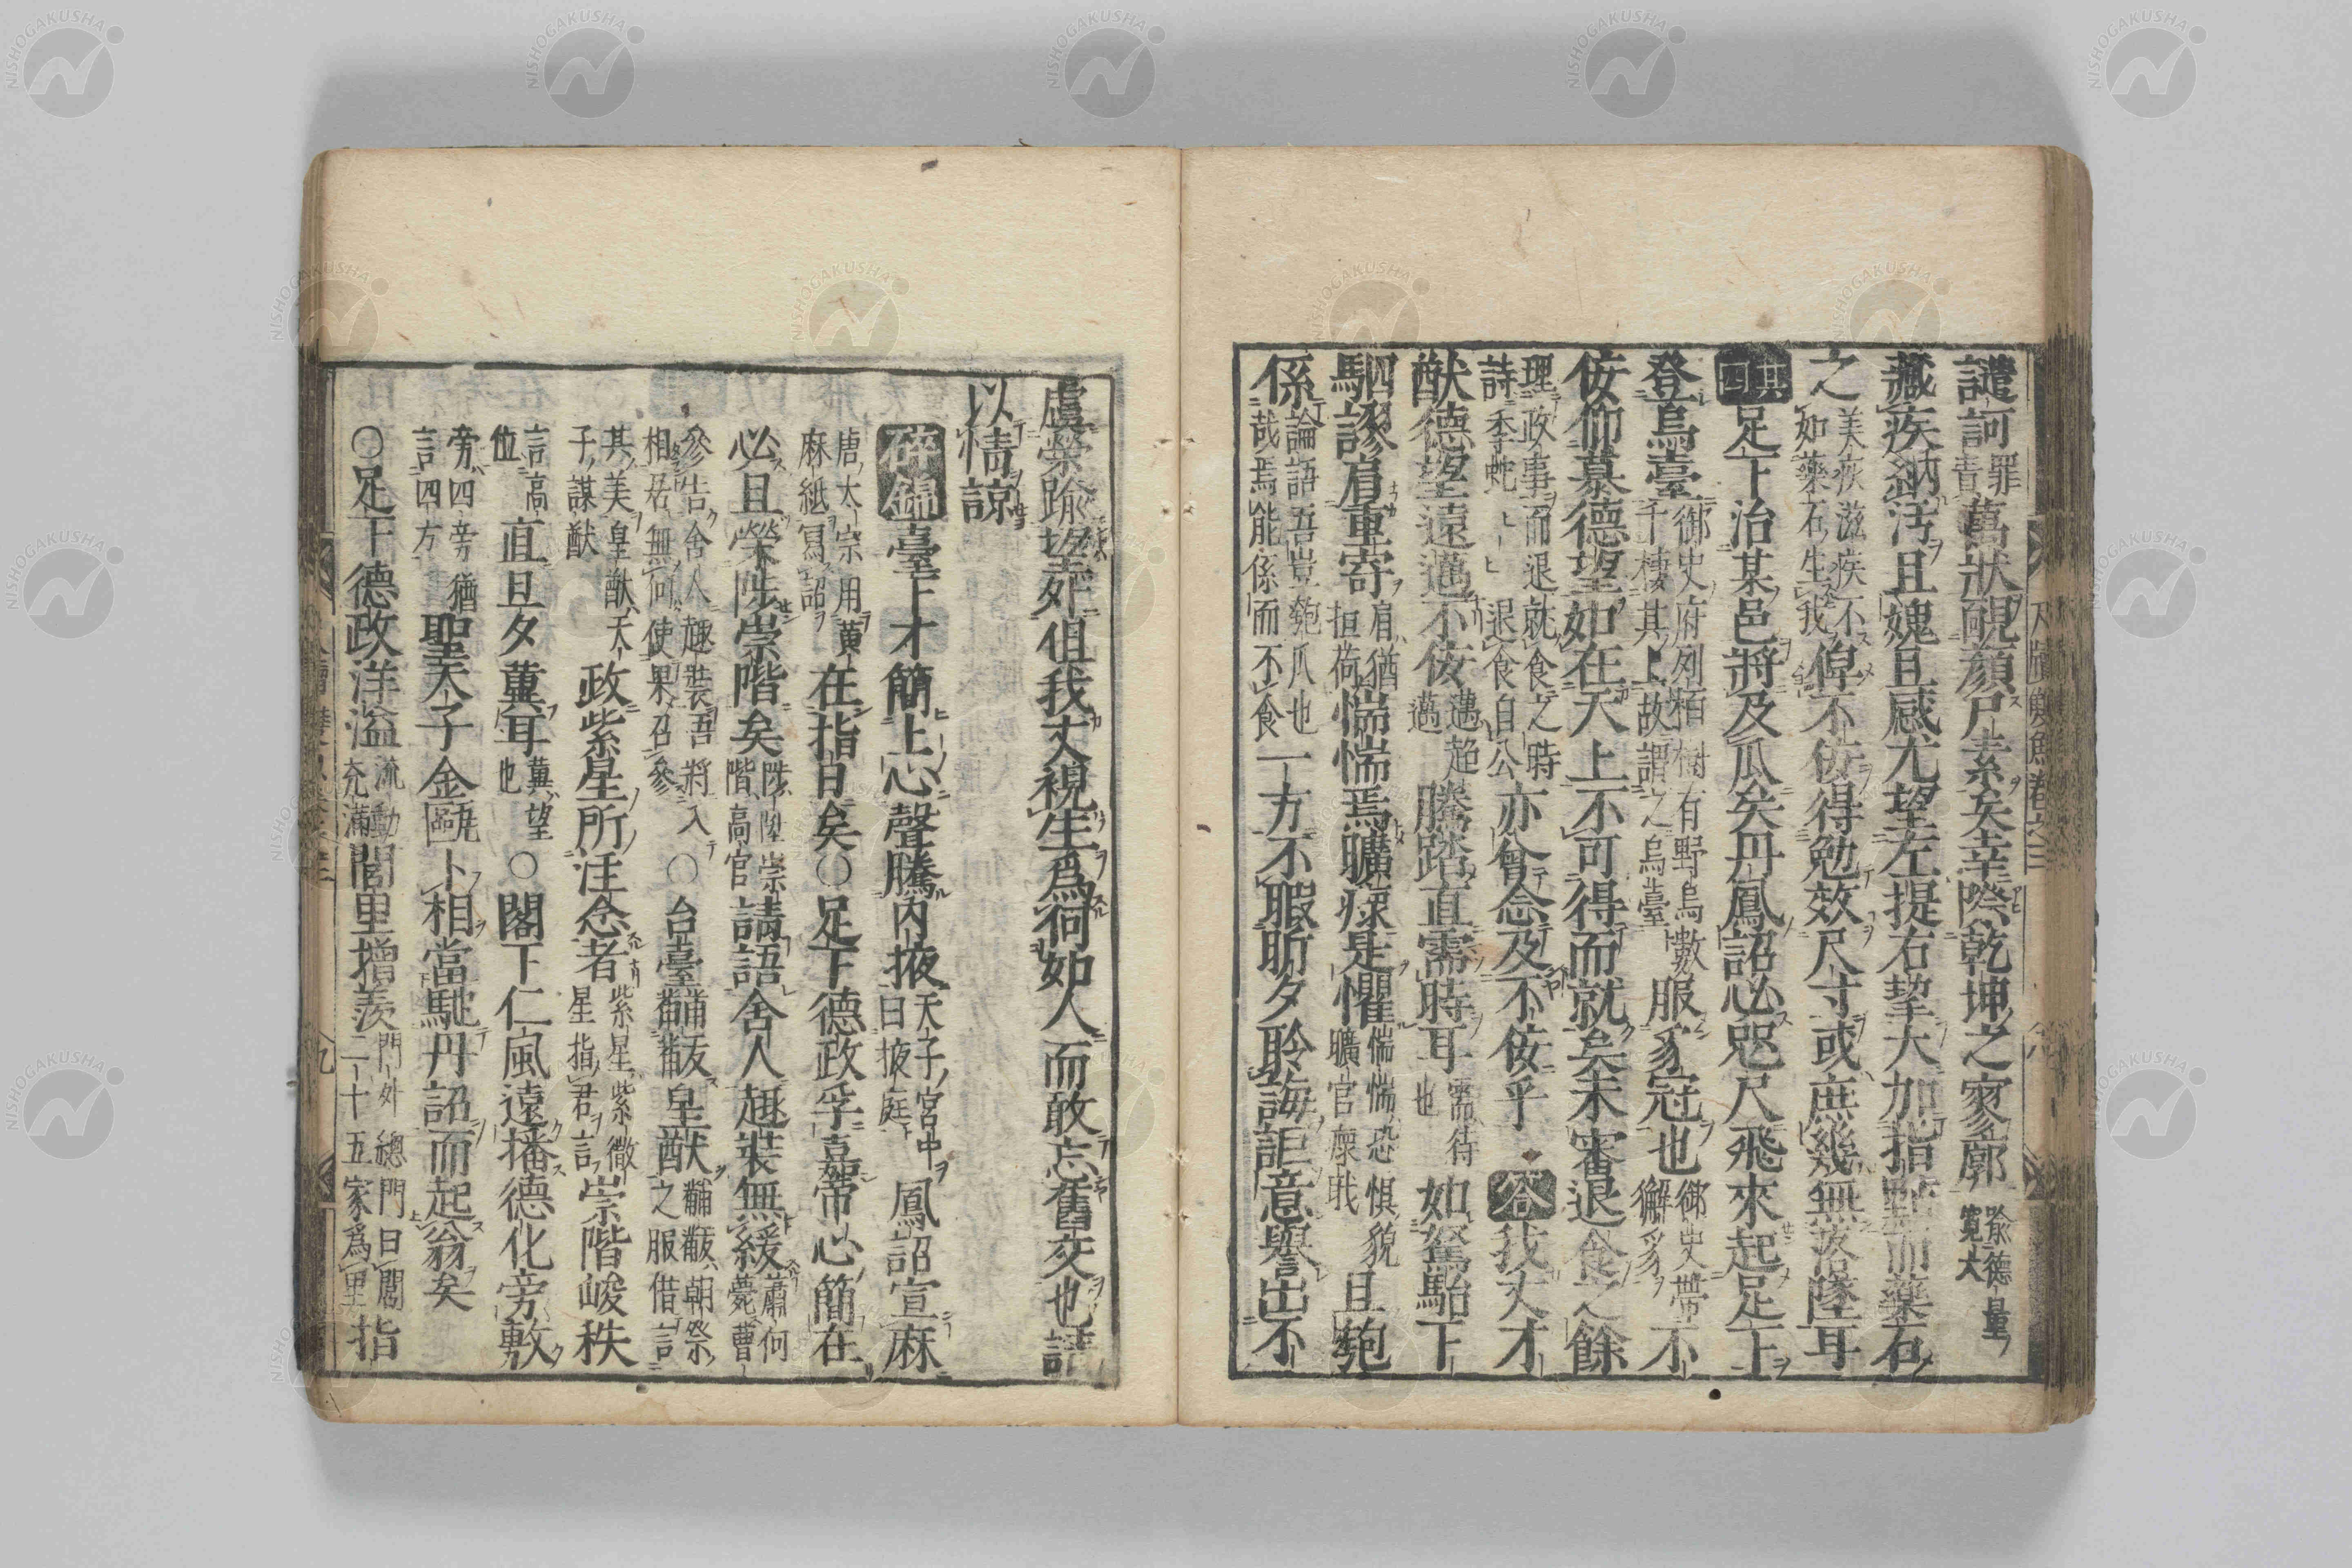 譴訶罪音萬狀靦顏尸素矣幸際乾坤之寥廓喩德量寬大
藏疾納汚且媿且感尤望左提右挈大加指點而藥石
之美疢滋疾不如藥石生我俾不佞得勉效尺寸或庶幾無落墜耳
其四足下治某邑將及瓜矣丹鳳詔必咫尺飛來起足下
登烏臺御史府列栢樹有野烏數千棲其上故謂之烏臺服豸冠也御史帶獬豸不
佞仰慕德望如在天上不可得而就矣未審退食之餘
理政事而退就食之時詩委蛇退食自公亦曾念及不佞乎答我丈才
猷德望遠邁不佞邁邁超騰踏直需時耳需待也如駑駘下
駟謬肩重寄肩猶担荷惴惴焉曠瘝是懼惴惴恐惧貌曠官瘝戝且匏
係論語吾豈匏瓜也哉焉能係而不食一九不暇昕夕聆誨詎意譽出不
虞榮踰望外但我丈視生爲何如人而敢忘舊交也請
以情諒
碎錦臺下才簡上心聲騰內掖天子宮中曰掖庭鳳詔宣麻
唐太宗用黃麻紙寫詔在指日矣○足下德政孚嘉帝心簡在
必且榮陟崇階矣陟陞崇階高官請語舍人趣裝無緩蕭何薨曹
參告舍人趣裝吾將入相居無何使果召參○台臺黼黻皇猷黼黻朝祭之服借言
其美皇猷天子謀猷政紫星所注念者紫星紫微星指君言崇階峻秩
言高位直旦夕冀耳冀望也○閣下仁風遠播德化旁敷
旁四旁猶言四方聖天子金甌卜相當馳丹詔而起翁矣
○足下德政洋溢流動充滿閭里增羨門外總門曰閭二十五家爲里指